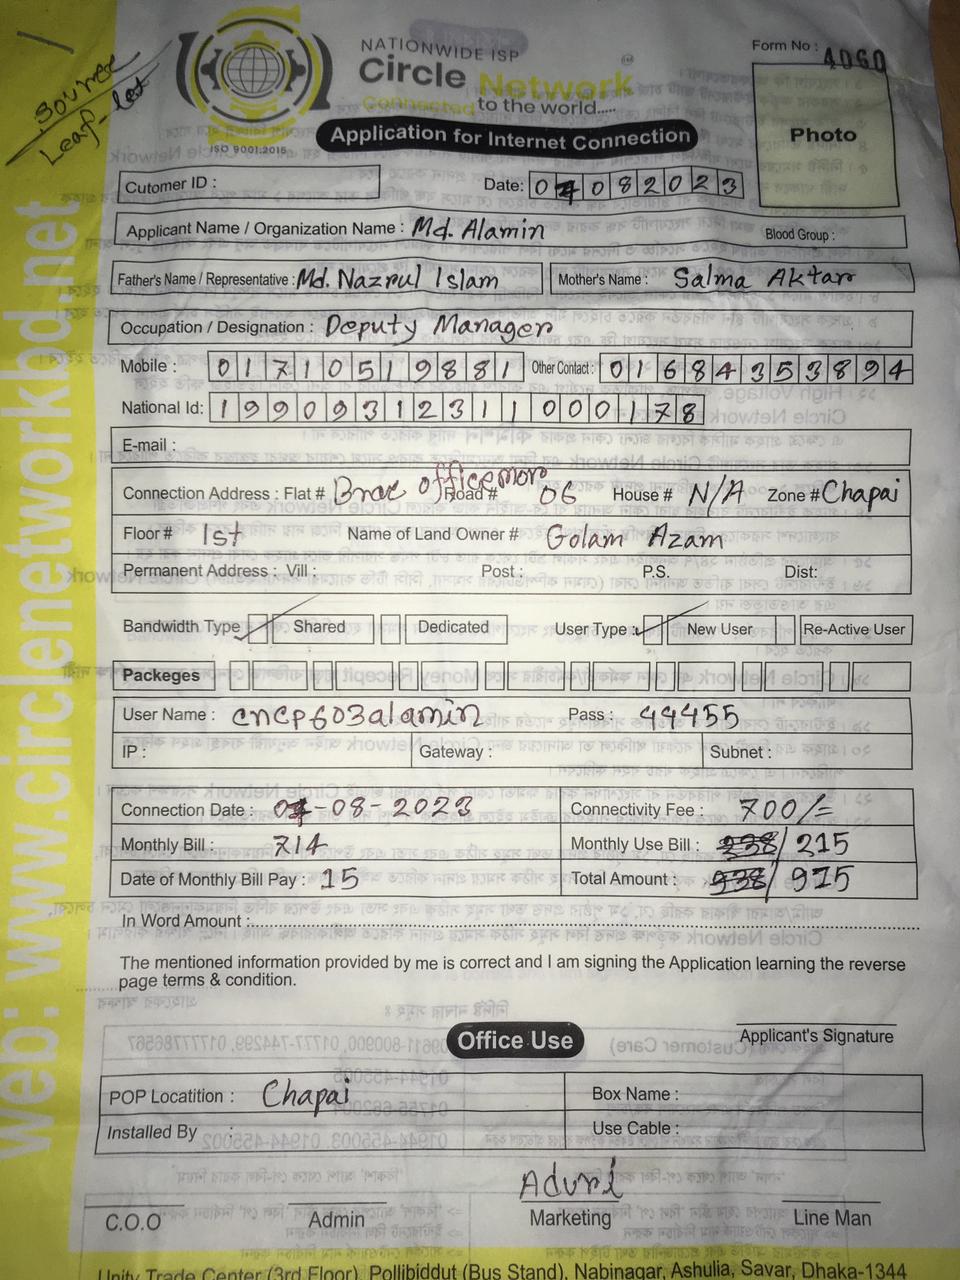 Source
Leaf_let
NATIONWIDE ISP
Circle Network
Connected to the world.....
ISO 9001:2015
Form No : 4060
Photo
Application for Internet Connection
Cutomer ID :
Date: 04082023
Applicant Name / Organization Name : Md. Alamin
Blood Group :
Father's Name / Representative : Md. Nazrul Islam
Mother's Name : Salma Aktar
Occupation / Designation : Deputy Manager
Mobile : 01710519881 Other Contact : 01684353894
National Id: 19909312311000178
E-mail :
Connection Address : Flat # Brac office mor Road # 06 House # N/A Zone # Chapai
Floor # 1st Name of Land Owner # Golam Azam
Permanent Address : Vill : Post : P.S. Dist:
Bandwidth Type Shared Dedicated User Type : New User Re-Active User
Packeges
User Name : cncp603alamin Pass : 44455
IP : Gateway : Subnet :
Connection Date : 04-08-2023 Connectivity Fee : 700/=
Monthly Bill : 714 Monthly Use Bill : 938/ 215
Date of Monthly Bill Pay : 15 Total Amount : 938/ 915
In Word Amount :
The mentioned information provided by me is correct and I am signing the Application learning the reverse
page terms & condition.
Applicant's Signature
Office Use
POP Locatition : Chapai Box Name :
Installed By : Use Cable :
Aduri
C.O.O Admin Marketing Line Man
Unity Trade Center (3rd Floor), Pollibiddut (Bus Stand), Nabinagar, Ashulia, Savar, Dhaka-1344
web: www.circlenetworkbd.net